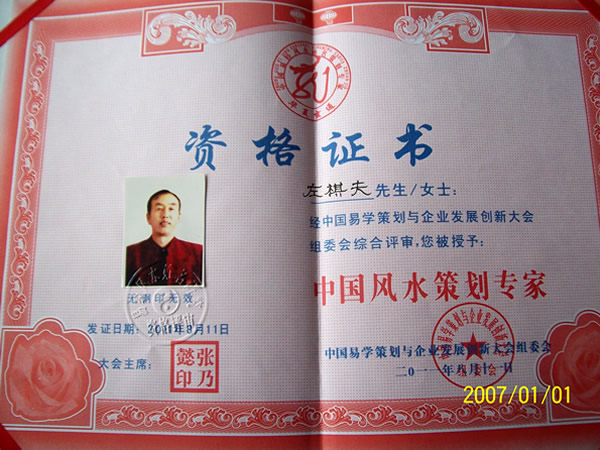 资格证书
左棋夫先生/女士:
经中国易学策划与企业发展创新大会
组委会综合评审,您被授予:
中国风水策划专家
无钢印无效
发证日期:2011年8月11日
大会主席:
张乃懿印
中国易学策划与企业发展创新大会组委会
二〇一一年八月十一日
2007/01/01